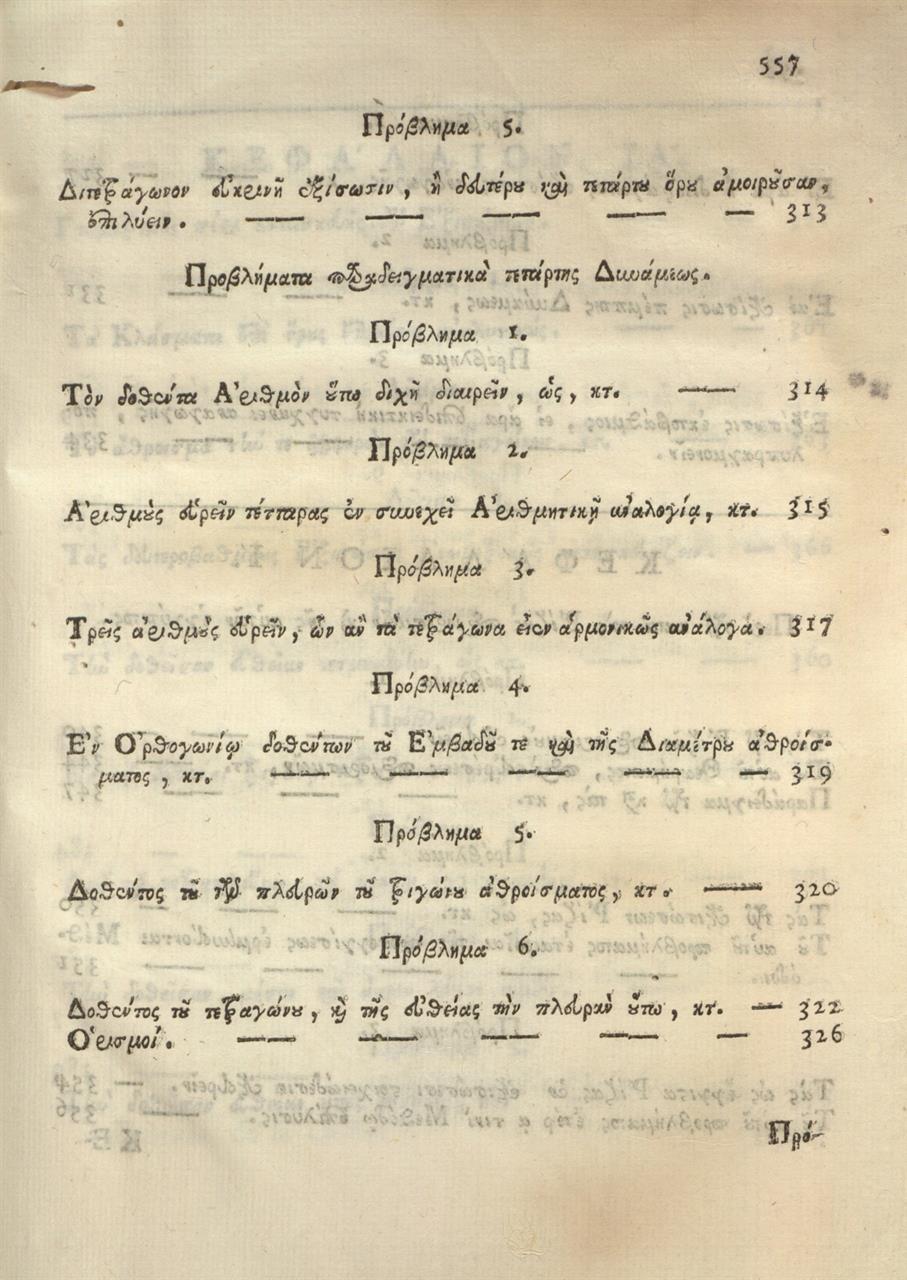 557
Πρόβλημα 5.
Διτετράγωνον εὐκρινῆ ἐξίσωσιν, ἢ δευτέρου καὶ τετάρτου ὅρου ἀμοιροῦσαν,
ἐπιλύειν. — — — — — 313
Προβλήματα παραδειγματικὰ τετάρτης Δυνάμεως.
Πρόβλημα 1.
Τὸν δοθέντα Ἀριθμὸν οὕτω διχῆ διαιρεῖν, ὡς, κτ. — 314
Πρόβλημα 2.
Ἀριθμοὺς εὑρεῖν τέτταρας ἐν συνεχεῖ Ἀριθμητικῇ ἀναλογίᾳ, κτ. 315
Πρόβλημα 3.
Τρεῖς ἀριθμοὺς εὑρεῖν, ὧν ἂν τὰ τετράγωνα εἶεν ἁρμονικῶς ἀνάλογα. 317
Πρόβλημα 4.
Ἐν Ὀρθογωνίῳ δοθέντων τοῦ Ἐμβαδοῦ τε καὶ τῆς Διαμέτρου ἀθροίσ-
ματος, κτ. — — — — — 319
Πρόβλημα 5.
Δοθέντος τοῦ τῶν πλευρῶν τοῦ τριγώνου ἀθροίσματος, κτ. — 320
Πρόβλημα 6.
Δοθέντος τοῦ τετραγώνου, καὶ τῆς εὐθείας τὴν πλευρὰν οὕτω, κτ. — 322
Ὁρισμοί. — — — — — 326
Πρό-